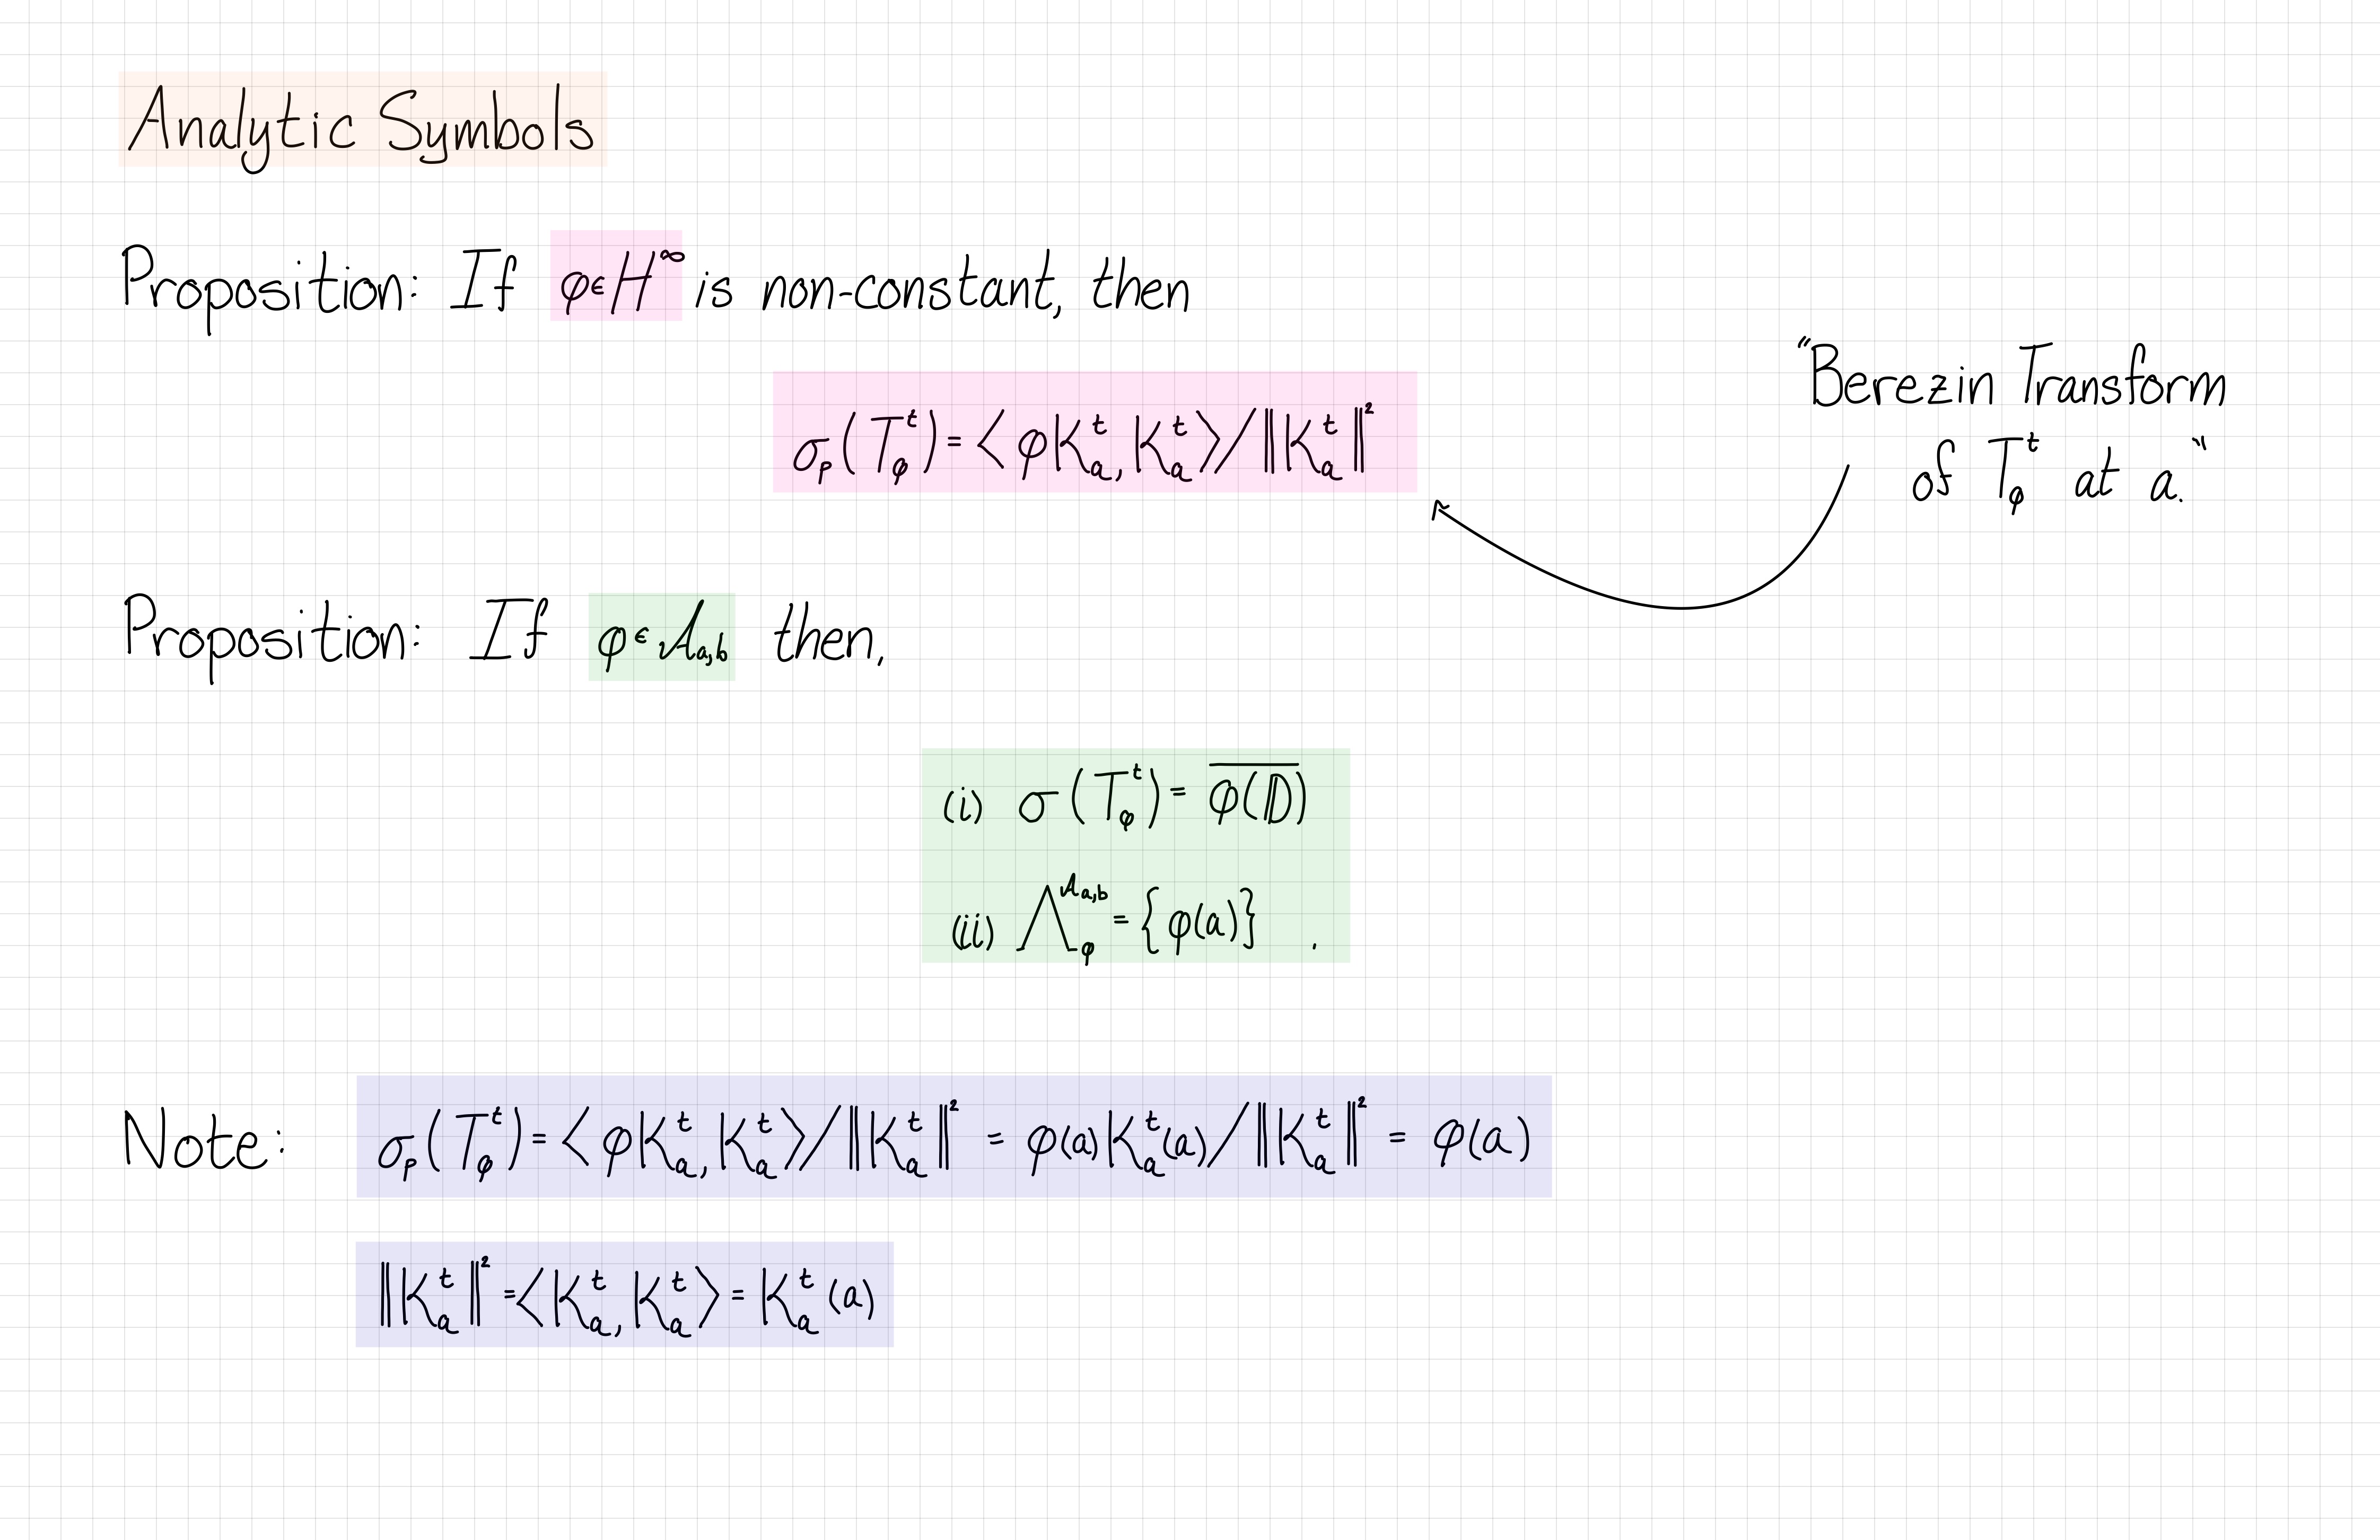 Analytic Symbols
Proposition: If φ∈H^∞ is non-constant, then
σ_p(T_φ^t) = ⟨φK_a^t, K_a^t⟩/‖K_a^t‖²
"Berezin Transform
of T_φ^t at a."
Proposition: If φ∈𝒜_{a,b} then,
(i) σ(T_φ^t) = \overline{φ(𝔻)}
(ii) Λ_φ^{𝒜_{a,b}} = {φ(a)} .
Note: σ_p(T_φ^t) = ⟨φK_a^t, K_a^t⟩/‖K_a^t‖² = φ(a)K_a^t(a)/‖K_a^t‖² = φ(a)
‖K_a^t‖² = ⟨K_a^t, K_a^t⟩ = K_a^t(a)